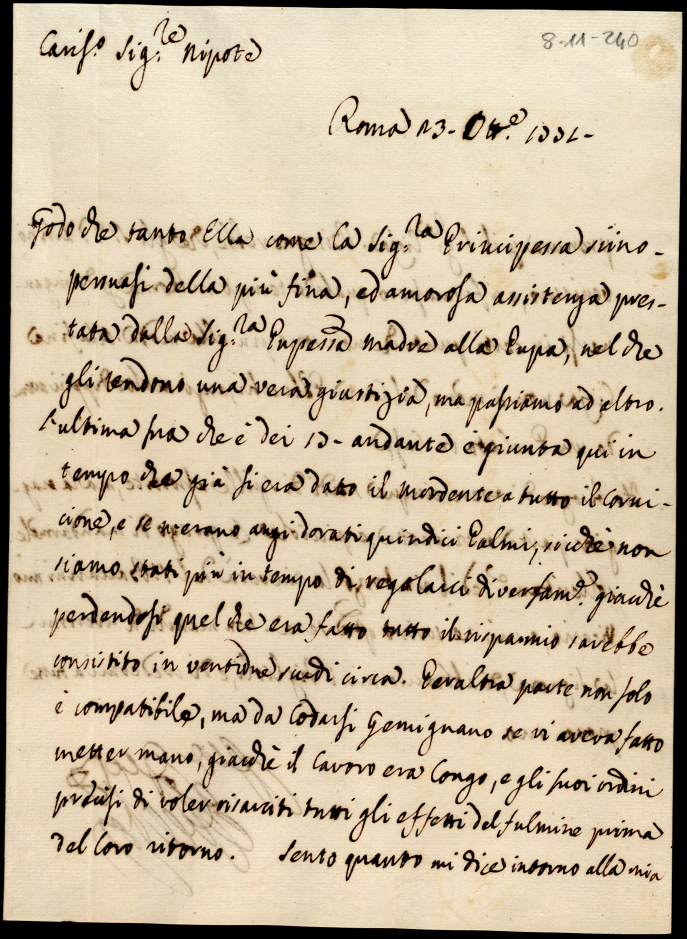 8-11-240
Cariss.o Sig.re Nipote
Roma 23. Ott.e
Godo che tanto Ella come la Sig.ra Principessa siino
persuasi della più fina, ed amorosa assistenza pres-
tata dalla Sig.ra Pnpessa madre alla Pnpa, nel che
gli rendono una vera giustizia, ma passiamo ad altro.
L'ultima sua che è dei 17. andante è giunta qui in
tempo che già si era datto il mordente a tutto il Corni-
cione, e se n'erano anzi dorati quindici Palmi, sicchè non
siamo stati più in tempo di regolarci diversam.e giacchè
perdendosi quel che era fatto tutto il risparmio sarebbe
consistito in ventidue scudi circa. Per altra parte non solo
è compatibile, ma da lodarsi Gemignano se vi aveva fatto
metter mano, giacchè il lavoro era longo, e gli suoi ordini
precisi di voler risarciti tutti gli effetti del fulmine prima
del loro ritorno. Sento quanto mi dice intorno alla mia